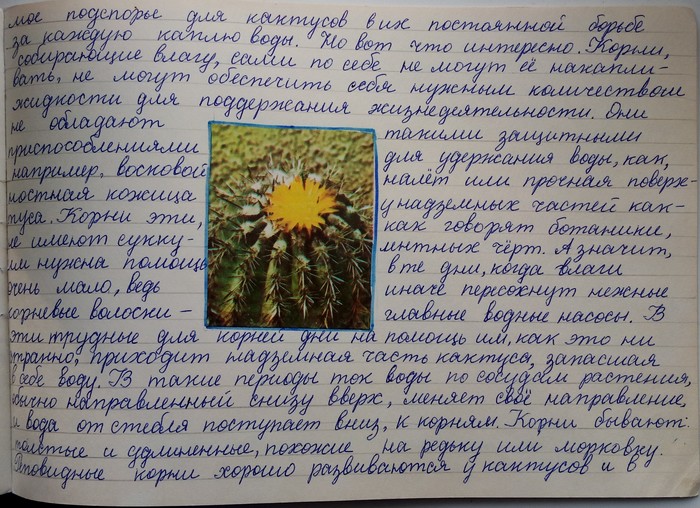 мое подспорье для кактусов в их постоянной борьбе
за каждую каплю воды. Но вот что интересно. Корни,
собирающие влагу, сами по себе не могут её накапли-
вать, не могут обеспечить себя нужным количеством
жидкости для поддержания жизнедеятельности. Они
не обладают такими защитными
приспособлениями для удержания воды, как,
например, восковой налёт или прочная поверх-
ностная кожица у надземных частей как-
туса. Корни эти, как говорят ботаники,
не имеют сукку- лнтных черт. А значит,
им нужна помощь в те дни, когда влаги
очень мало, ведь иначе пересохнут нежные
корневые волоски – главные водные насосы. В
эти трудные для корней дни на помощь им, как это ни
странно, приходит надземная часть кактуса, запасшая
в себе воду. В такие периоды ток воды по сосудам растения,
обычно направленный снизу вверх, меняет своё направление,
и вода от стебля поступает вниз, к корням. Корни бывают
толстые и удлиненные, похожие на редьку или морковку.
Реповидные корни хорошо развиваются у кактусов и в